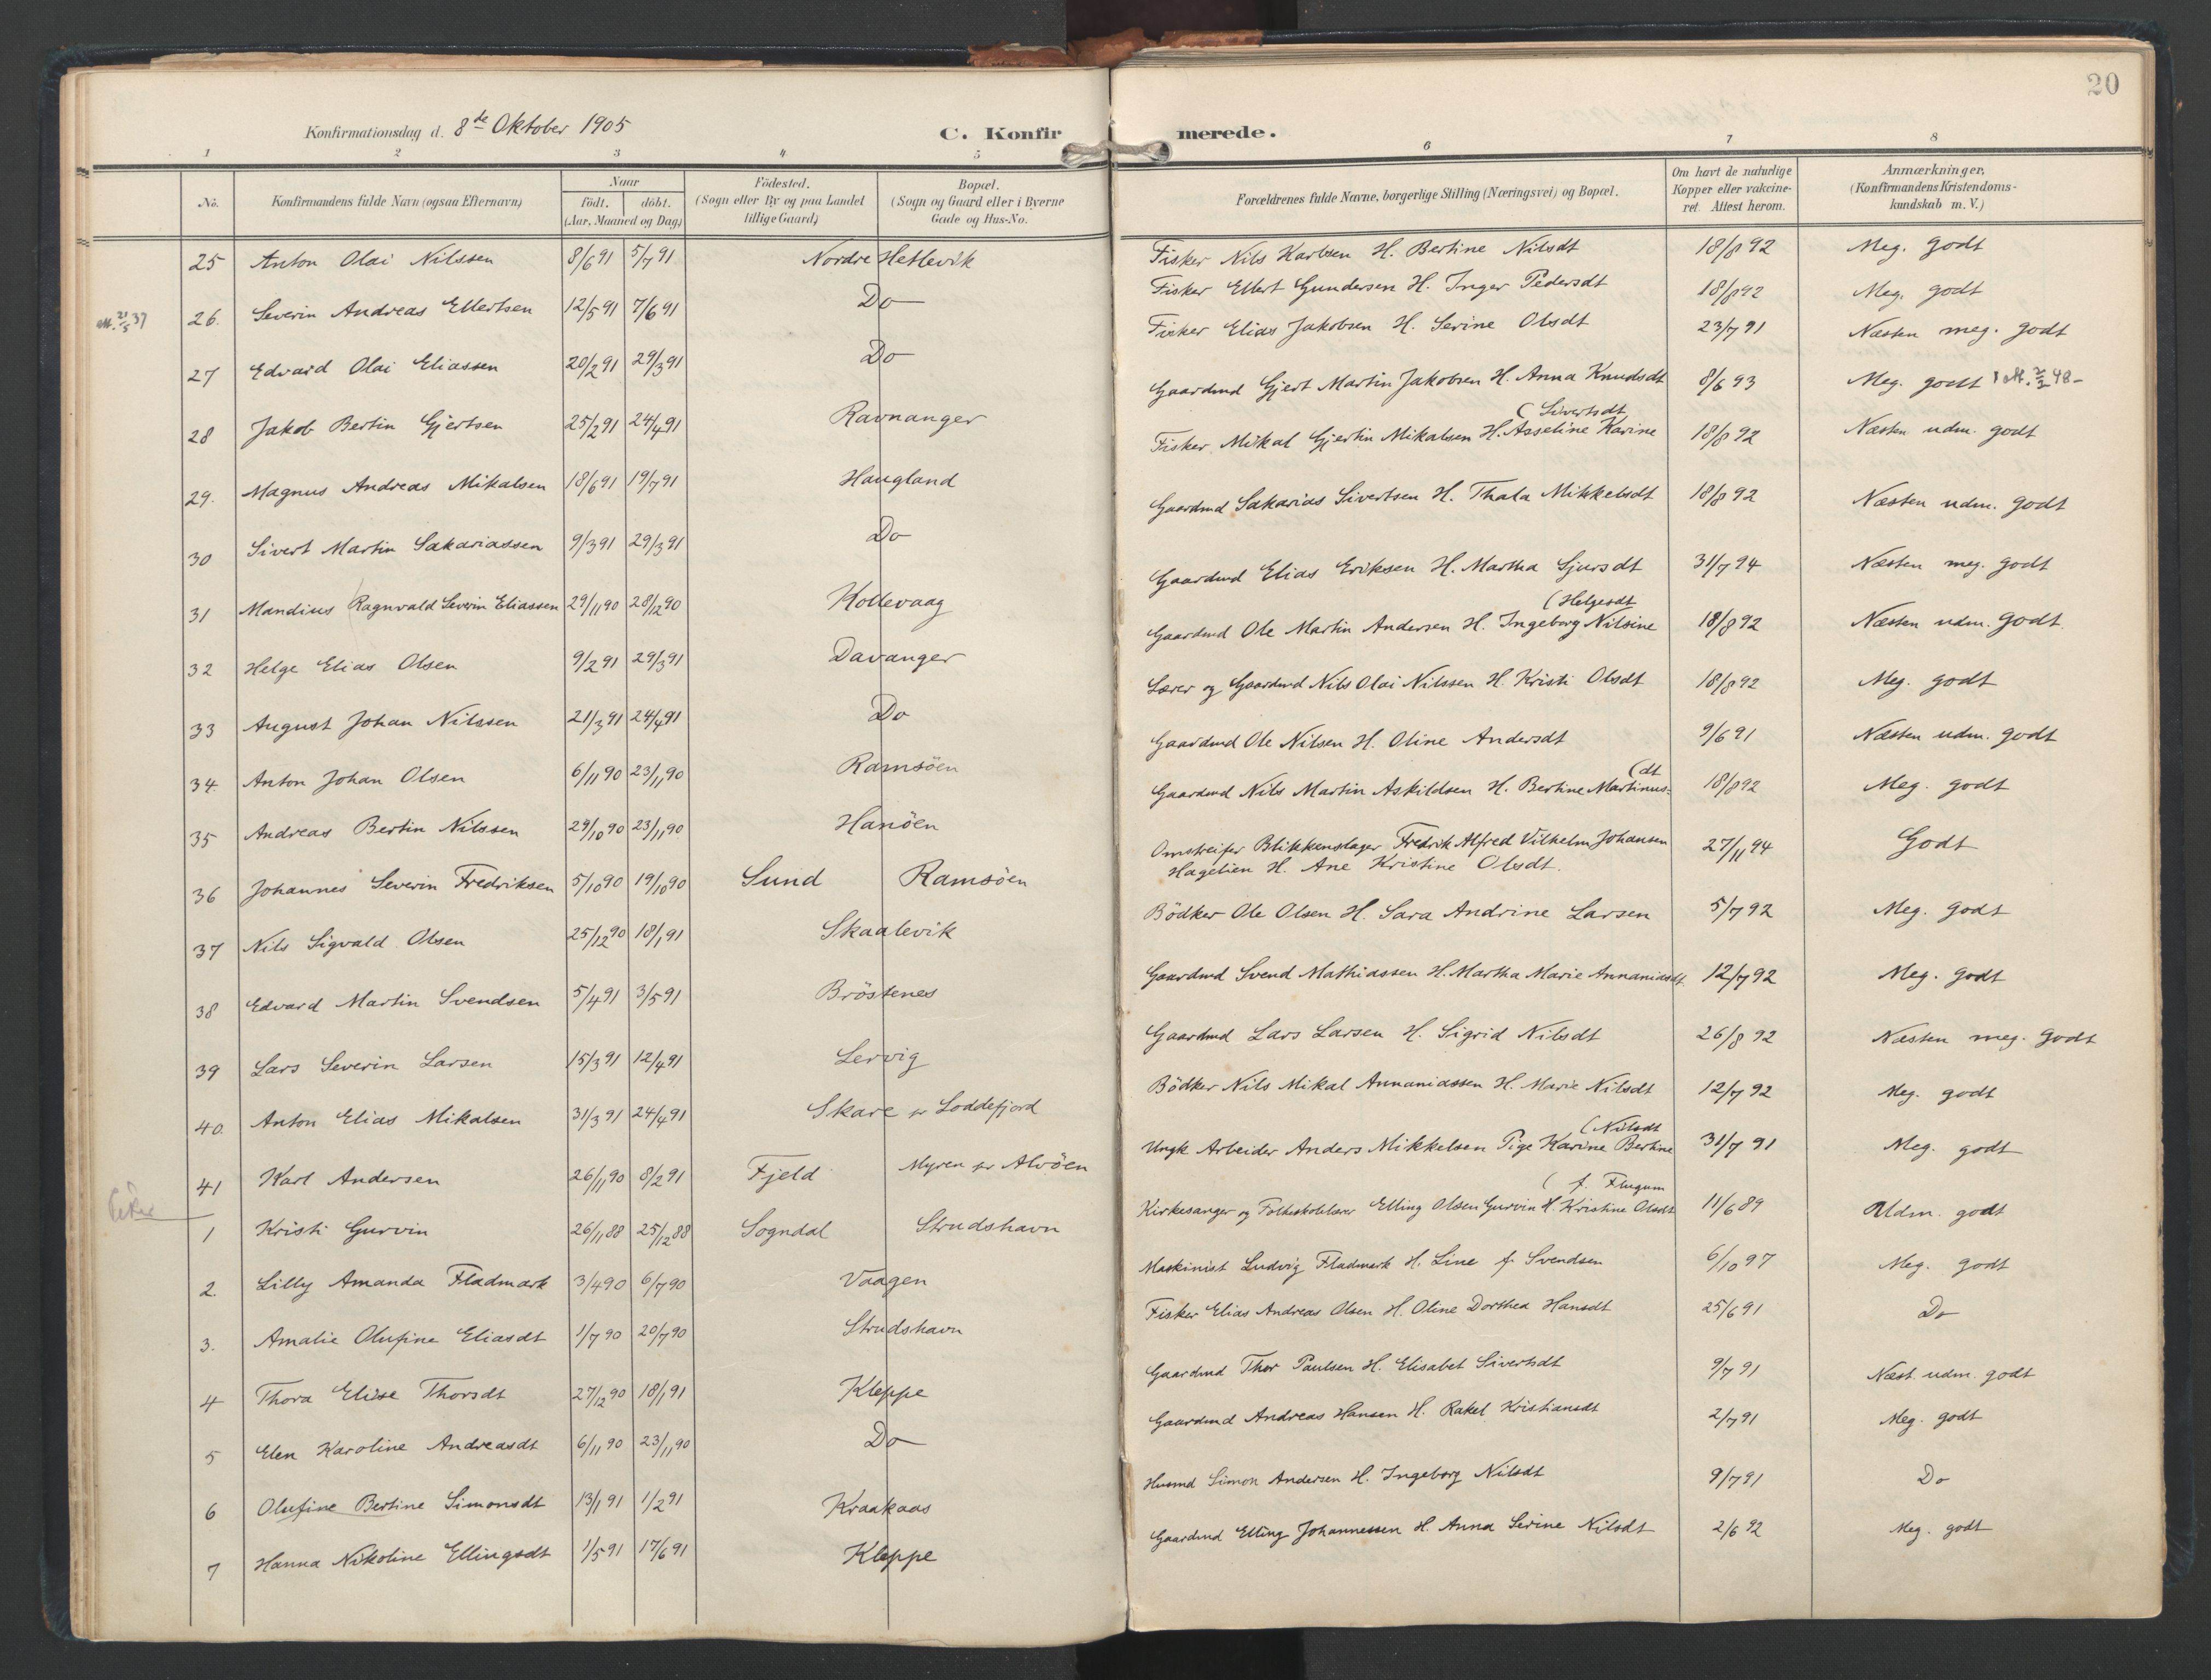 20
Konfirmationsdag d. 8de Oktober 1905 C. Konfirmerede.
1 2 3 4 5 6 7 8
No. Konfirmandens fulde Navn (ogsaa Efternavn) Naar født. døbt. (Aar, Maaned og Dag) Fødested. (Sogn eller By og paa Landet tillige Gaard) Bopæl. (Sogn og Gaard eller i Byerne Gade og Hus-No. Forældrenes fulde Navne, borgerlige Stilling (Næringsvei) og Bopæl. Om havt de naturlige Kopper eller vakcineret. Attest herom. Anmærkninger. (Konfirmandens Kristendomskundskab m. V.)
25 Anton Olai Nilssen 8/6 91 5/7 91 Nordre Hetlevik Fisker Nils Karlsen H. Bertine Nilsdt 18/8 92 Meg. godt
26. Severin Andreas Ellertsen 12/5 91 7/6 91 Do Fisker Ellert Gundersen H. Inger Pedersdt 18/8 92 Meg. godt
27 Edvard Olai Eliassen 20/2 91 29/3 91 Do Fisker Elias Jakobsen H. Serine Olsdt 23/7 91 Næsten meg. godt
28 Jakob Bertin Gjertsen 25/2 91 24/4 91 Ravnanger Gaardmd Gjert Martin Jakobsen H. Anna Knudsdt 8/6 93 Meg. godt
29. Magnus Andreas Mikalsen 18/6 91 19/7 91 Haugland Fisker Mikal Gjertin Mikalsen H. Asseline Karine (Sivertsdt 18/8 92 Næsten udm. godt
30 Sivert Martin Sakariassen 9/3 91 29/3 91 Do Gaardmd Sakarias Sivertsen H. Thala Mikkelsdt 18/8 92 Næsten udm. godt
31 Mandius Ragnvald Severin Eliassen 29/11 90 28/12 90 Kollevaag Gaardmd Elias Eriksen H. Martha Sjursdt 31/7 94 Næsten meg. godt
32 Helge Elias Olsen 9/2 91 29/3 91 Davanger Gaardmd Ole Martin Andersen H. Ingeborg Nilsine (Helgesdt 18/8 92 Næsten udm. godt
33 August Johan Nilssen 21/3 91 24/4 91 Do Lærer og Gaardmd Nils Olai Nilssen H. Kristi Olsdt 18/8 92 Meg. godt
34. Anton Johan Olsen 6/11 90 23/11 90 Ramsöen Gaardmd Ole Nilsen H. Oline Andersdt 9/6 91 Næsten udm. godt
35 Andreas Bertin Nilssen 29/10 90 23/11 90 Hanöen Gaardmd Nils Martin Askildsen H. Bertine Martinus= (dt 18/8 92 Meg. godt
36 Johannes Severin Fredriksen 5/10 90 19/10 90 Sund Ramsöen Omstreifer Blikkenslager Fredrik Alfred Vilhelm Johansen
Hagelien H. Ane Kristine Olsdt. 27/11 94 Godt
37 Nils Sigvald Olsen 25/12 90 18/1 91 Skaalevik Bödker Ole Olsen H. Sara Andrine Larsen 5/7 92 Meg. godt
38 Edvard Martin Svendsen 5/4 91 3/5 91 Bröstenes Gaardmd Svend Mathiassen H. Martha Marie Annaniasdt 12/7 92 Meg. godt
39 Lars Severin Larsen 15/3 91 12/4 91 Lervig Gaardmd Lars Larsen H. Sigrid Nilsdt 26/8 92 Næsten meg. godt
40. Anton Elias Mikalsen 31/3 91 24/4 91 Skare pr Loddefjord Bödker Nils Mikal Annaniassen H. Marie Nilsdt 12/7 92 Meg. godt
41 Karl Andersen 26/11 90 8/2 91 Fjeld Myren pr Alvöen Ungk Arbeider Anders Mikkelsen Pige Karine Bertine (Nilsdt 31/7 91 Meg. godt
1 Kristi Gurvin 26/11 88 25/12 88 Sogndal Strudshavn Kirkesanger og Folkeskolelærer Elling Olsen Gurvin H. Kristine Olsdt (f. Flugum 11/6 89 Udm. godt
2 Lilly Amanda Fladmark 3/4 90 6/7 90 Vaagen Maskinist Ludvig Fladmark H. Line f. Svendsen 6/10 97 Meg. godt
3. Amalie Olufine Eliasdt 1/7 90 20/7 90 Strudshavn Fisker Elias Andreas Olsen H. Oline Dorthea Hansdt 25/6 91 Do
4 Thora Elise Thorsdt 27/12 90 18/1 91 Kleppe Gaardmd Thor Paulsen H. Elisabet Sivertsdt 9/7 91 Næst. udm. godt
5 Elen Karoline Andreasdt 6/11 90 23/11 90 Do Gaardmd Andreas Hansen H. Rakel Kristiansdt 2/7 91 Meg. godt
6 Olufine Bertine Simonsdt 13/1 91 1/2 91 Kraakaas Husmd Simon Andersen H. Ingeborg Nilsdt 9/7 91 Do
7 Hanna Nikoline Ellingsdt 1/5 91 17/6 91 Kleppe Gaardmd Elling Johannessen H. Anna Serine Nilsdt 2/6 92 Meg. godt